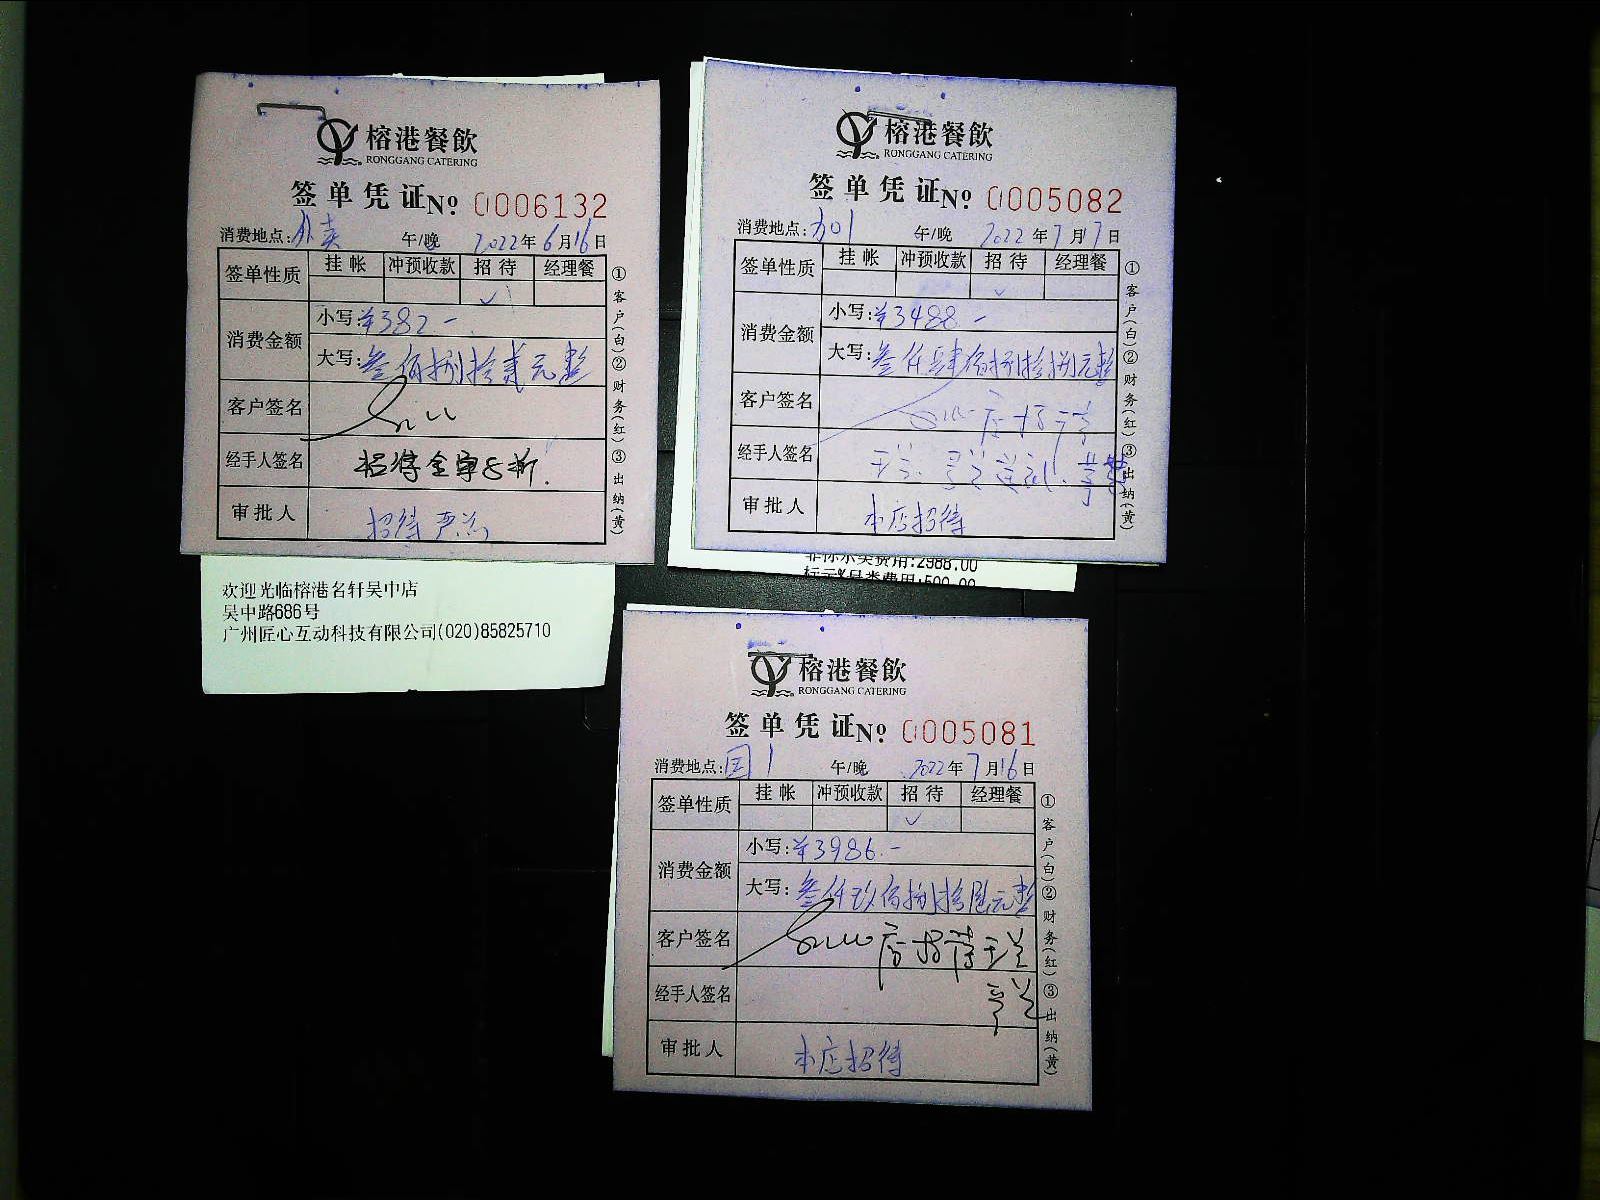 榕港餐飲
RONGGANG CATERING
签单凭证№ 0006132
消费地点:外卖 午/晚 2022年6月16日
签单性质 挂帐 冲预收款 招待 经理餐
✓
消费金额
小写:¥382-
大写:叁佰捌拾贰元整
客户签名
经手人签名 招待
审批人 招待
①客户(白)②财务(红)③出纳(黄)
欢迎光临榕港名轩吴中店
吴中路686号
广州匠心互动科技有限公司(020)85825710
榕港餐飲
RONGGANG CATERING
签单凭证№ 0005082
消费地点: 午/晚 2022年7月17日
签单性质 挂帐 冲预收款 招待 经理餐
✓
消费金额
小写:¥3488-
大写:叁仟肆佰捌拾捌元整
客户签名
经手人签名
审批人 本店招待
①客户(白)②财务(红)③出纳(黄)
非标示类费用:2988.00
费用:500.00
榕港餐飲
RONGGANG CATERING
签单凭证№ 0005081
消费地点:国1 午/晚 2022年7月16日
签单性质 挂帐 冲预收款 招待 经理餐
✓
消费金额
小写:¥3986.-
大写:叁仟玖佰捌拾陆元整
客户签名 店招待
经手人签名
审批人 本店招待
①客户(白)②财务(红)③出纳(黄)